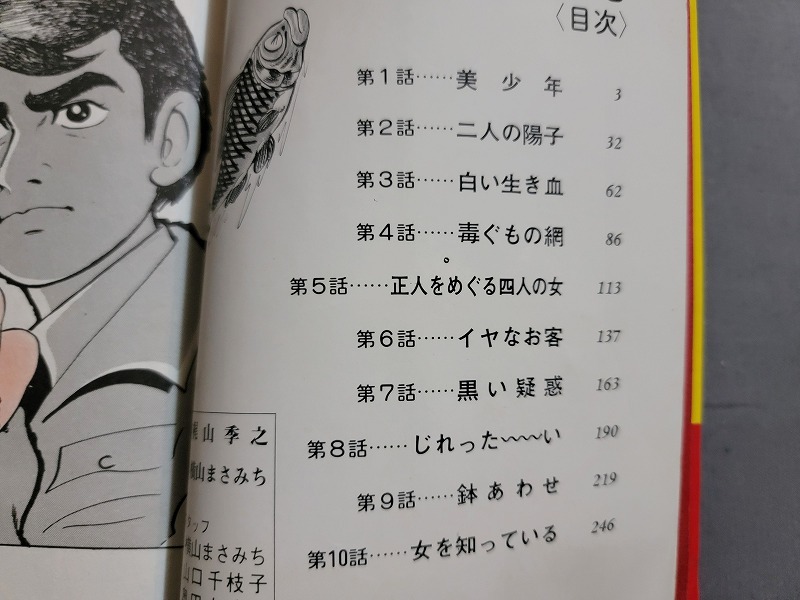 〈目次〉
第1話……美少年 3
第2話……二人の陽子 32
第3話……白い生き血 62
第4話……毒ぐもの網 86
第5話……正人をめぐる四人の女 113
第6話……イヤなお客 137
第7話……黒い疑惑 163
第8話……じれった〜〜〜い 190
第9話……鉢あわせ 219
第10話……女を知っている 246
山季之
山まさみち
タッフ
山まさみち
山口千枝子